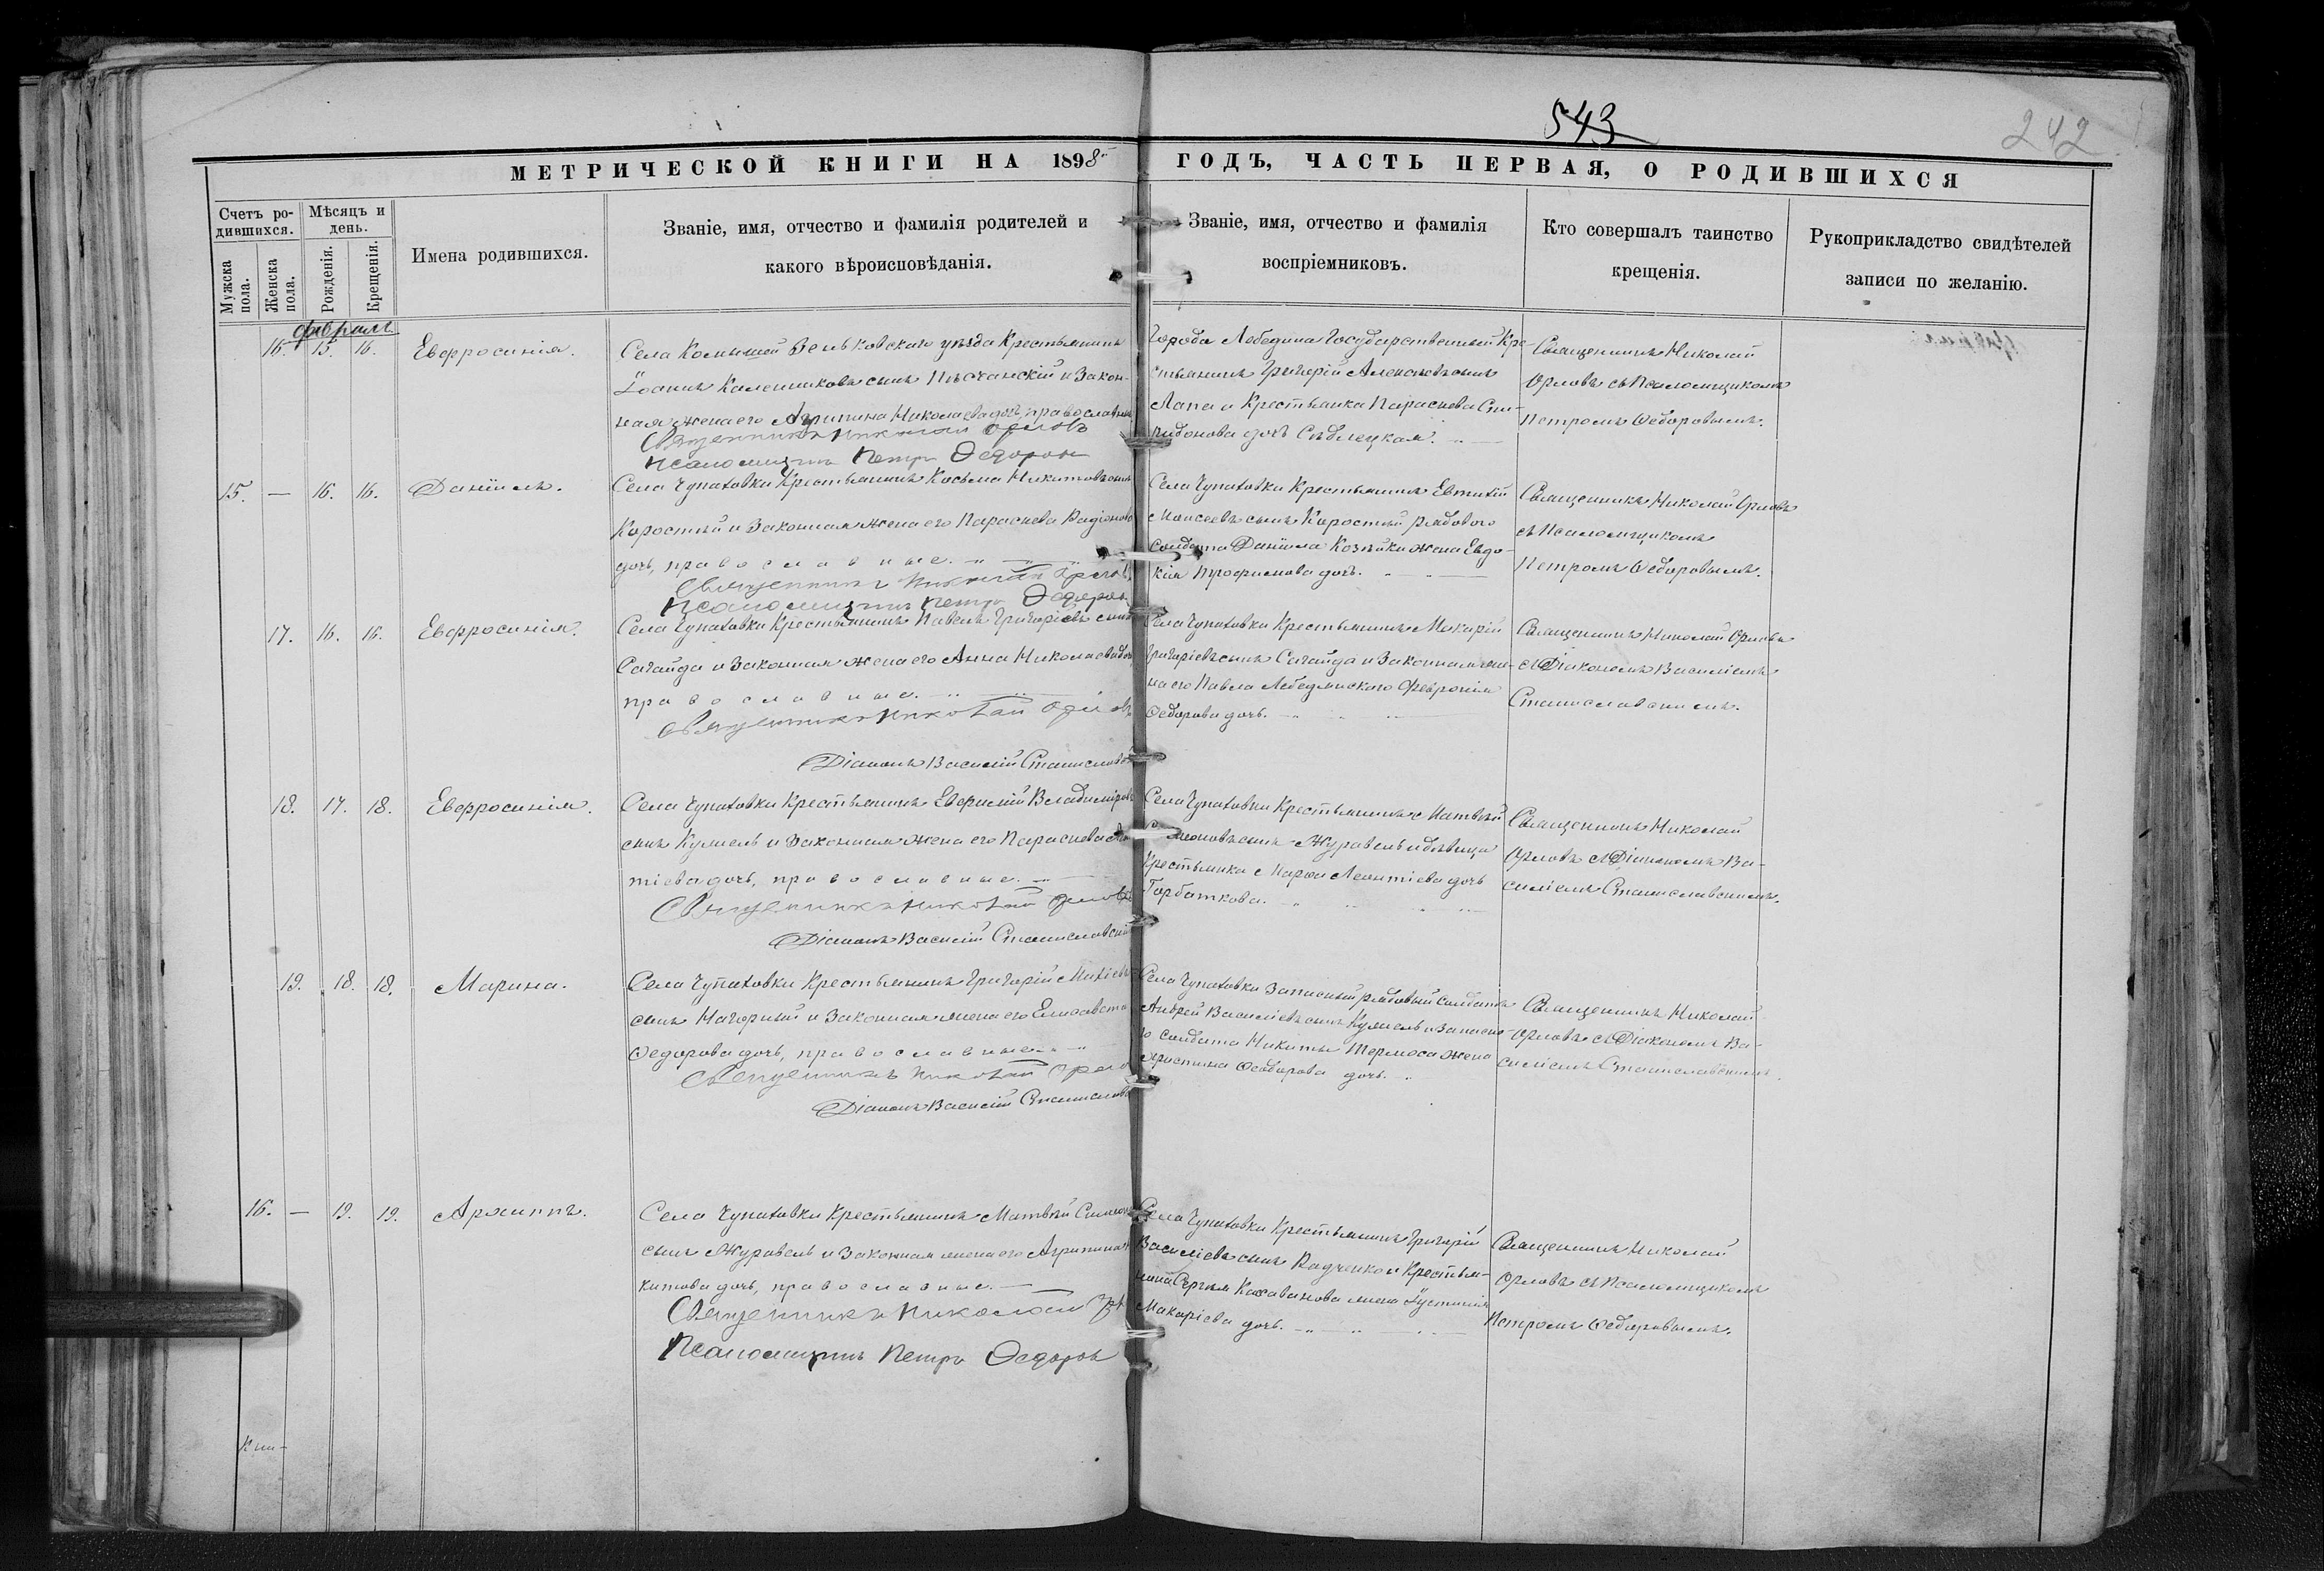 543
242
МЕТРИЧЕСКОЙ КНИГИ НА 1898 ГОДЪ, ЧАСТЬ ПЕРВАЯ, О РОДИВШИХСЯ
Счетъ ро-
дившихся.
Мужска
пола.
Женска
пола.
Мѣсяцъ и
день.
Рожденія.
Крещенія.
Имена родившихся.
Званіе, имя, отчество и фамилія родителей и
какого вѣроисповѣданія.
Званіе, имя, отчество и фамилія
воспріемниковъ.
Кто совершалъ таинство
крещенія.
Рукоприкладство свидѣтелей
записи по желанію.
февраль
16. 15. 16.
Евфросинія.
Села Комышей Зеньковскаго уѣзда Крестьянинъ
Іоаннъ Калениковъ сынъ Пѣсчанскій и Закон-
ная жена его Агрипина Николаева дочь, православные
Священникъ Николай Орловъ
Псаломщикъ Петръ Ѳедоровъ
Города Лебедина Государственный Кре-
стьянинъ Григорій Алексѣевъ сынъ
Лапа и Крестьянка Параскева Спи-
ридонова дочь Сѣдлецкая.
Священникъ Николай
Орловъ съ Псаломщикомъ
Петромъ Ѳедоровымъ.
15. — 16. 16.
Даніилъ.
Села Чупаховки Крестьянинъ Косьма Никитовъ сынъ
Коростый и Законная жена его Параскева Радіонова
дочь, православные.
Священникъ Николай Орловъ
Псаломщикъ Петръ Ѳедоровъ
Села Чупаховки Крестьянинъ Евтихій
Моисеевъ сынъ Коростый рядового
солдата Даніила Козѣйки жена Евдо-
кія Трофимова дочь.
Священникъ Николай Орловъ
съ Псаломщикомъ
Петромъ Ѳедоровымъ.
17. 16. 16.
Евфросинія.
Села Чупаховки Крестьянинъ Павелъ Григоріевъ сынъ
Сагайда и Законная жена его Анна Николаева дочь
православные.
Священникъ Николай Орловъ
Діаконъ Василій Станиславск
Села Чупаховки Крестьянинъ Макарій
Григоріевъ сынъ Сагайда и Законная же-
на его Павла Лебединского Февронія
Ѳедорова дочь.
Священникъ Николай Орловъ
съ Діакономъ Василіемъ
Станиславскимъ.
18. 17. 18.
Евфросинія.
Села Чупаховки Крестьянинъ Ефимій Владиміровъ
сынъ Кумель и Законная жена его Параскева
тіева дочь, православные.
Священникъ Николай Орловъ
Діаконъ Василій Станиславскій
Села Чупаховки Крестьянинъ Матвѣй
Симеоновъ сынъ Журавель и дѣвица
Крестьянка Марѳа Леонтіева дочь
Горбаткова.
Священникъ Николай
Орловъ съ Діакономъ Ва-
силіемъ Станиславскимъ.
19. 18. 18.
Марина.
Села Чупаховки Крестьянинъ Григорій Михіевъ
сынъ Нагорный и Законная жена его Елисавета
Ѳедорова дочь, православные.
Священникъ Николай Орло
Діаконъ Василій Станиславск
Села Чупаховки Запасный рядовый солдатъ
Андрей Василіевъ сынъ Кумель и запасно-
го солдата Никиты Термоса жена
Христина Ѳеодорова дочь.
Священникъ Николай
Орловъ съ Діакономъ Ва-
силіемъ Станиславскимъ.
16. — 19. 19.
Архиппъ.
Села Чупаховки Крестьянинъ Матвѣй Симеон
сынъ Журавель и Законная жена его Агрипина Ни-
китова дочь, православные.
Священникъ Николай Ор
Псаломщикъ Петръ Ѳедоровъ
Села Чупаховки Крестьянинъ Григорій
Василіевъ сынъ Радченко и Крестья-
нина Сергѣя Кахаванова жена Іустинія
Макаріева дочь.
Священникъ Николай
Орловъ съ Псаломщикомъ
Петромъ Ѳедоровымъ.